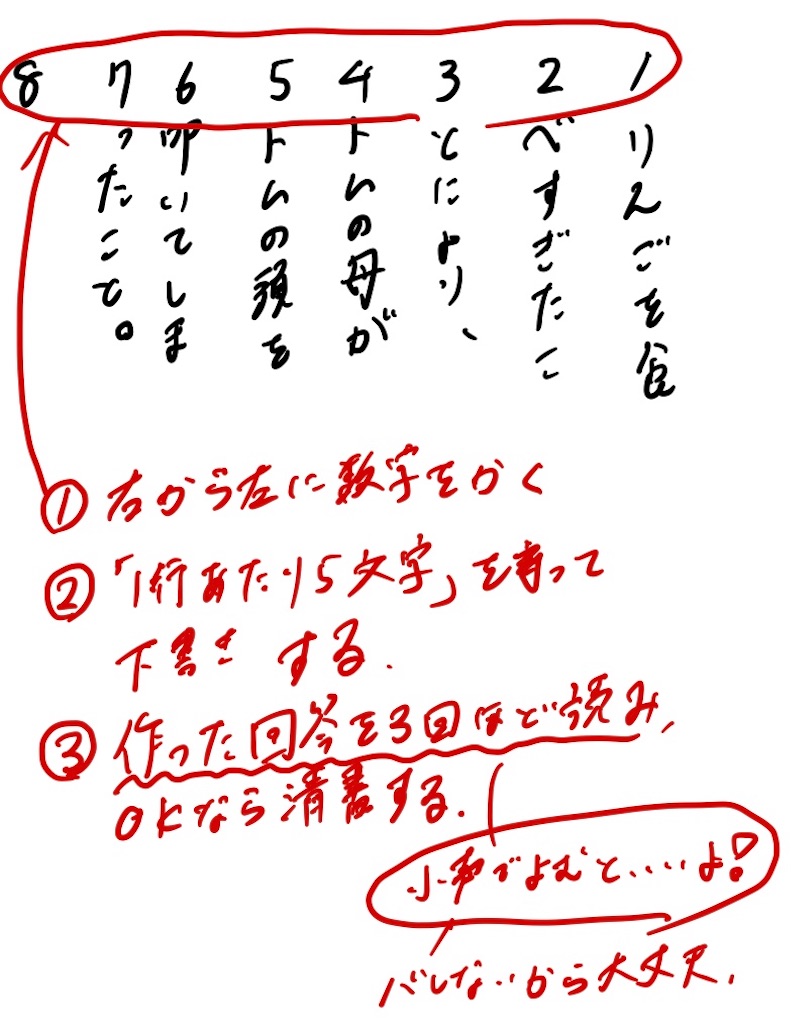 1 りんごを食
2 べすぎたこ
3 とにより、
4 トムの母が
5 トムの頭を
6 叩いてしま
7 ったこと。
8
① 右から左に数字をかく
② 「1行あたり5文字」を守って
下書きする.
③ 作った回答を3回ほど読み,
OKなら清書する.
小声でよむと、いいよ!
バレないから大丈夫.